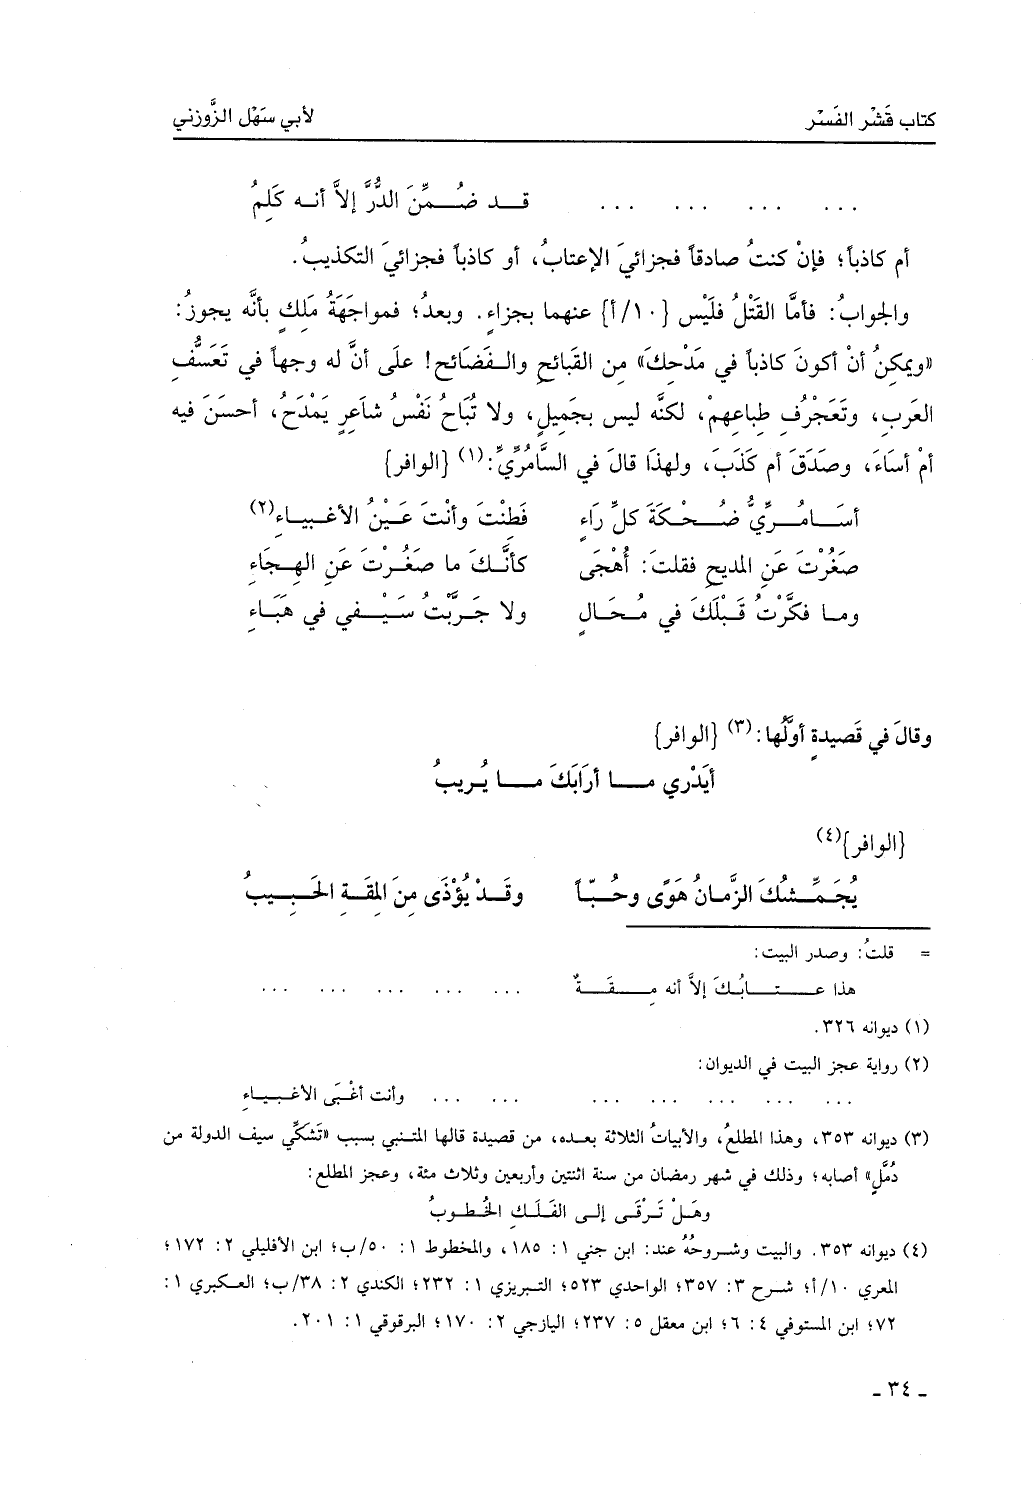 كتاب قَشْر الفَسْر لأبي سَهْل الزَّوْزني
... ... ... ... قــد ضُــمِّنَ الدُّرَّ إلاَّ أنــه كَلِمُ
أم كاذباً؛ فإنْ كنتُ صادقاً فجزائيَ الإعتابُ، أو كاذباً فجزائيَ التكذيبُ.
والجوابُ: فأمَّا القَتْلُ فلَيْس {١٠/أ} عنهما بجزاءٍ. وبعدُ؛ فمواجَهَةُ مَلِكٍ بأنَّه يجوزُ:
«ويمكنُ أنْ أكونَ كاذباً في مَدْحِكَ» من القبائحِ والــفَضَائحِ! علَى أنَّ له وجهاً في تَعَسُّفِ
العَربِ، وتَعَجْرُفِ طباعِهمْ، لكنَّه ليس بجَميلٍ، ولا تُبَاحُ نَفْسُ شاعَرٍ يَمْدَحُ، أحسَنَ فيه
أمْ أسَاءَ، وصَدَقَ أم كَذَبَ، ولهذَا قالَ في السَّامُرِّيِّ:(١) {الوافر}
أسَــامُــرِّيُّ ضُــحْــكَةَ كلِّ رَاءٍ فَطِنْتَ وأنْتَ عَــيْنُ الأغْــبِيــاءِ(٢)
صَغُرْتَ عَنِ المديحِ فقلتَ: أُهْجَى كأنَّــكَ ما صَغُــرْتَ عَنِ الهِــجَاءِ
ومــا فكَّرْتُ قَــبْلَكَ في مُــحَــالٍ ولا جَــرَّبْتُ سَــيْــفي في هَبَــاءِ
وقالَ في قَصيدةٍ أوَّلُها:(٣) {الوافر}
أيَدْري مــا أرَابَكَ مــا يُــريبُ
{الوافر}(٤)
يُجَمِّــشُكَ الزَّمانُ هَوًى وحُــبّاً وقَــدْ يُؤْذَى مِنَ المِقَــةِ الحَــبِــيبُ
= قلتُ: وصدر البيت:
هذا عــتــابُــكَ إلاَّ أنه مِــقَــةٌ ... ... ... ... ...
(١) ديوانه ٣٢٦.
(٢) رواية عجز البيت في الديوان:
... ... ... ... ... ... ... وأنت أغْــبَى الأغــبــياءِ
(٣) ديوانه ٣٥٣، وهذا المطلعُ، والأبياتُ الثلاثة بعــده، من قصيدة قالها المتــنبي بسبب «تَشَكِّي سيف الدولة من
دُمَّلٍ» أصابه؛ وذلك في شهر رمضان من سنة اثنتين وأربعين وثلاث مئة، وعجز المطلع:
وهَــلْ تَــرْقَــى إلــى الفَــلَــكِ الخُــطوبُ
(٤) ديوانه ٣٥٣. والبيت وشــروحُهُ عند: ابن جني ١: ١٨٥، والمخطوط ١: ٥٠/ب؛ ابن الأفليلي ٢: ١٧٢؛
المعري ١٠/أ؛ شــرح ٣: ٣٥٧؛ الواحدي ٥٢٣؛ التــبريزي ١: ٢٣٢؛ الكندي ٢: ٣٨/ب؛ العــكبري ١:
٧٢؛ ابن المستوفي ٤: ٦؛ ابن معقل ٥: ٢٣٧؛ اليازجي ٢: ١٧٠؛ البرقوقي ١: ٢٠١.
ـ ٣٤ ـ